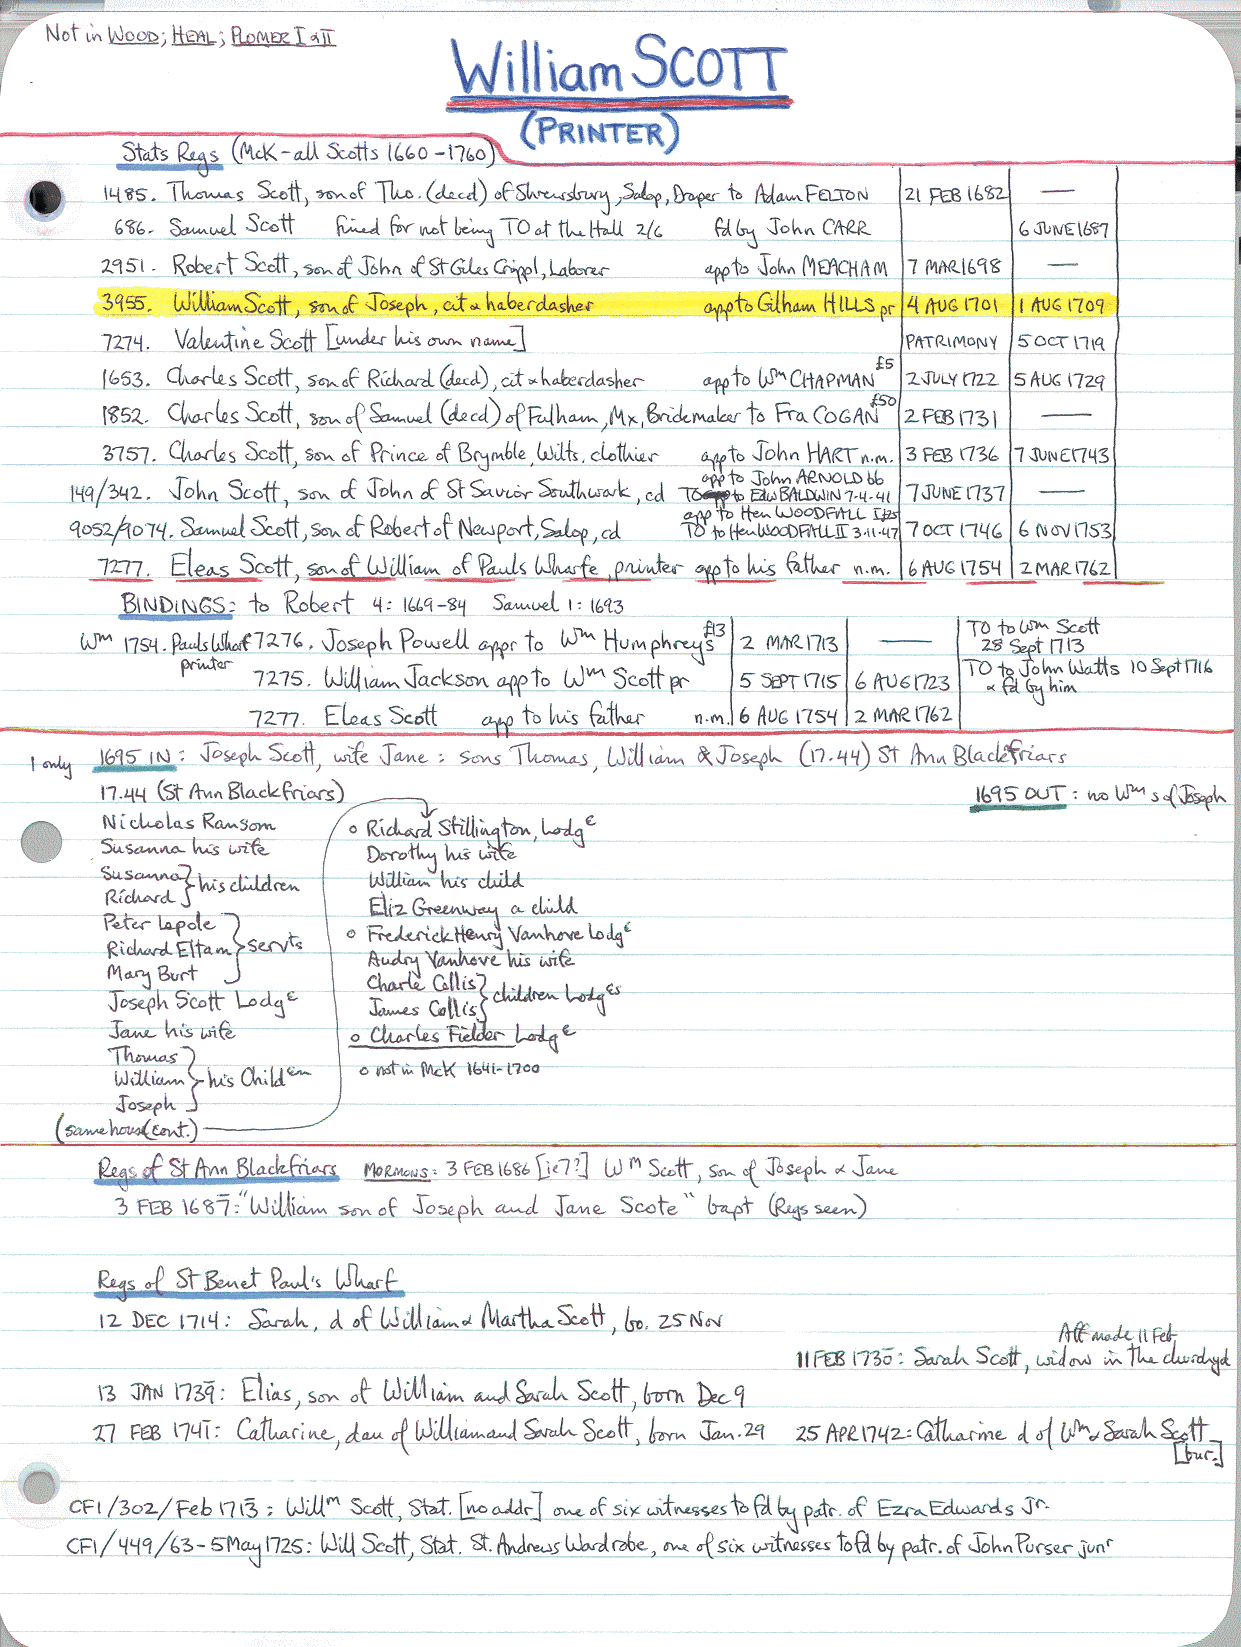 Not in WOOD; HEAL; PLOMER I & II
William SCOTT
(PRINTER)
Stats Regs (McK - all Scotts 1660-1760)
1485. Thomas Scott, son of Tho. (decd) of Shrewsbury, Salop, Draper to Adam FELTON 21 FEB 1682 —
686. Samuel Scott fined for not being TO at the Hall 2/6 fd by John CARR 6 JUNE 1687
2951. Robert Scott, son of John of St Giles Crippl, Laborer app to John MEACHAM 7 MAR 1698 —
3955. William Scott, son of Joseph, cit & haberdasher app to Gilham HILLS pr 4 AUG 1701 1 AUG 1709
7274. Valentine Scott [under his own name] PATRIMONY 5 OCT 1719
1653. Charles Scott, son of Richard (decd), cit & haberdasher app to Wm CHAPMAN £5 2 JULY 1722 5 AUG 1729
1852. Charles Scott, son of Samuel (decd) of Fulham, Mx, Bridemaker to Fra COGAN £50 2 FEB 1731 —
3757. Charles Scott, son of Prince of Brymble, Wilts, clothier app to John HART n.m. 3 FEB 1736 7 JUNE 1743
app to John ARNOLD bb
149/342. John Scott, son of John of St Savior Southwark, cd TO to Edw BALDWIN 7-4-41 7 JUNE 1737 —
app to Hen WOODFALL I £25
9052/9074. Samuel Scott, son of Robert of Newport, Salop, cd TO to Hen WOODFALL II 3-11-47 7 OCT 1746 6 NOV 1753
7277. Eleas Scott, son of William of Pauls Wharfe, printer app to his father n.m. 6 AUG 1754 2 MAR 1762
BINDINGS: to Robert 4: 1669-84 Samuel 1: 1693
Wm 1754. Pauls Wharf printer
7276. Joseph Powell appr to Wm Humphreys £13 2 MAR 1713 — TO to Wm Scott 28 Sept 1713
7275. William Jackson app to Wm Scott pr 5 SEPT 1715 6 AUG 1723 TO to John Watts 10 Sept 1716 & fd by him
7277. Eleas Scott app to his father n.m. 6 AUG 1754 2 MAR 1762
1 only 1695 IN: Joseph Scott, wife Jane: sons Thomas, William & Joseph (17.44) St Ann Blackfriars
1695 OUT: no Wm s of Joseph
17.44 (St Ann Blackfriars)
Nicholas Ransom
Susanna his wife
Susanna
Richard } his children
Peter Lepole
Richard Eltam } servts
Mary Burt
Joseph Scott Lodge
Jane his wife
Thomas
William } his Children
Joseph
(same house (cont.)
o Richard Stillington, Lodge
Dorothy his wife
William his child
Eliz Greenway a child
o Frederick Henry Vanhove Lodge
Audry Vanhove his wife
Charle Collis
James Collis } children Lodges
o Charles Fielder Lodge
o not in McK 1641-1700
Regs of St Ann Blackfriars MORMONS: 3 FEB 1686 [ie 7?] Wm Scott, son of Joseph & Jane
3 FEB 1687: "William son of Joseph and Jane Scote" bapt (Regs seen)
Regs of St Benet Paul's Wharf
12 DEC 1714: Sarah, d of William & Martha Scott, bo. 25 Nov
Aff made 11 Feb
11 FEB 1730: Sarah Scott, widow in the churchyd
13 JAN 1739: Elias, son of William and Sarah Scott, born Dec 9
27 FEB 1741: Catharine, dau of William and Sarah Scott, born Jan. 29
25 APR 1742: Catharine d of Wm & Sarah Scott [bur.]
CF1/302/Feb 1713: Willm Scott, Stat. [no addr] one of six witnesses to fd by patr. of Ezra Edwards Jr.
CF1/449/63 - 5 May 1725: Will Scott, Stat. St. Andrews Wardrobe, one of six witnesses to fd by patr. of John Purser junr